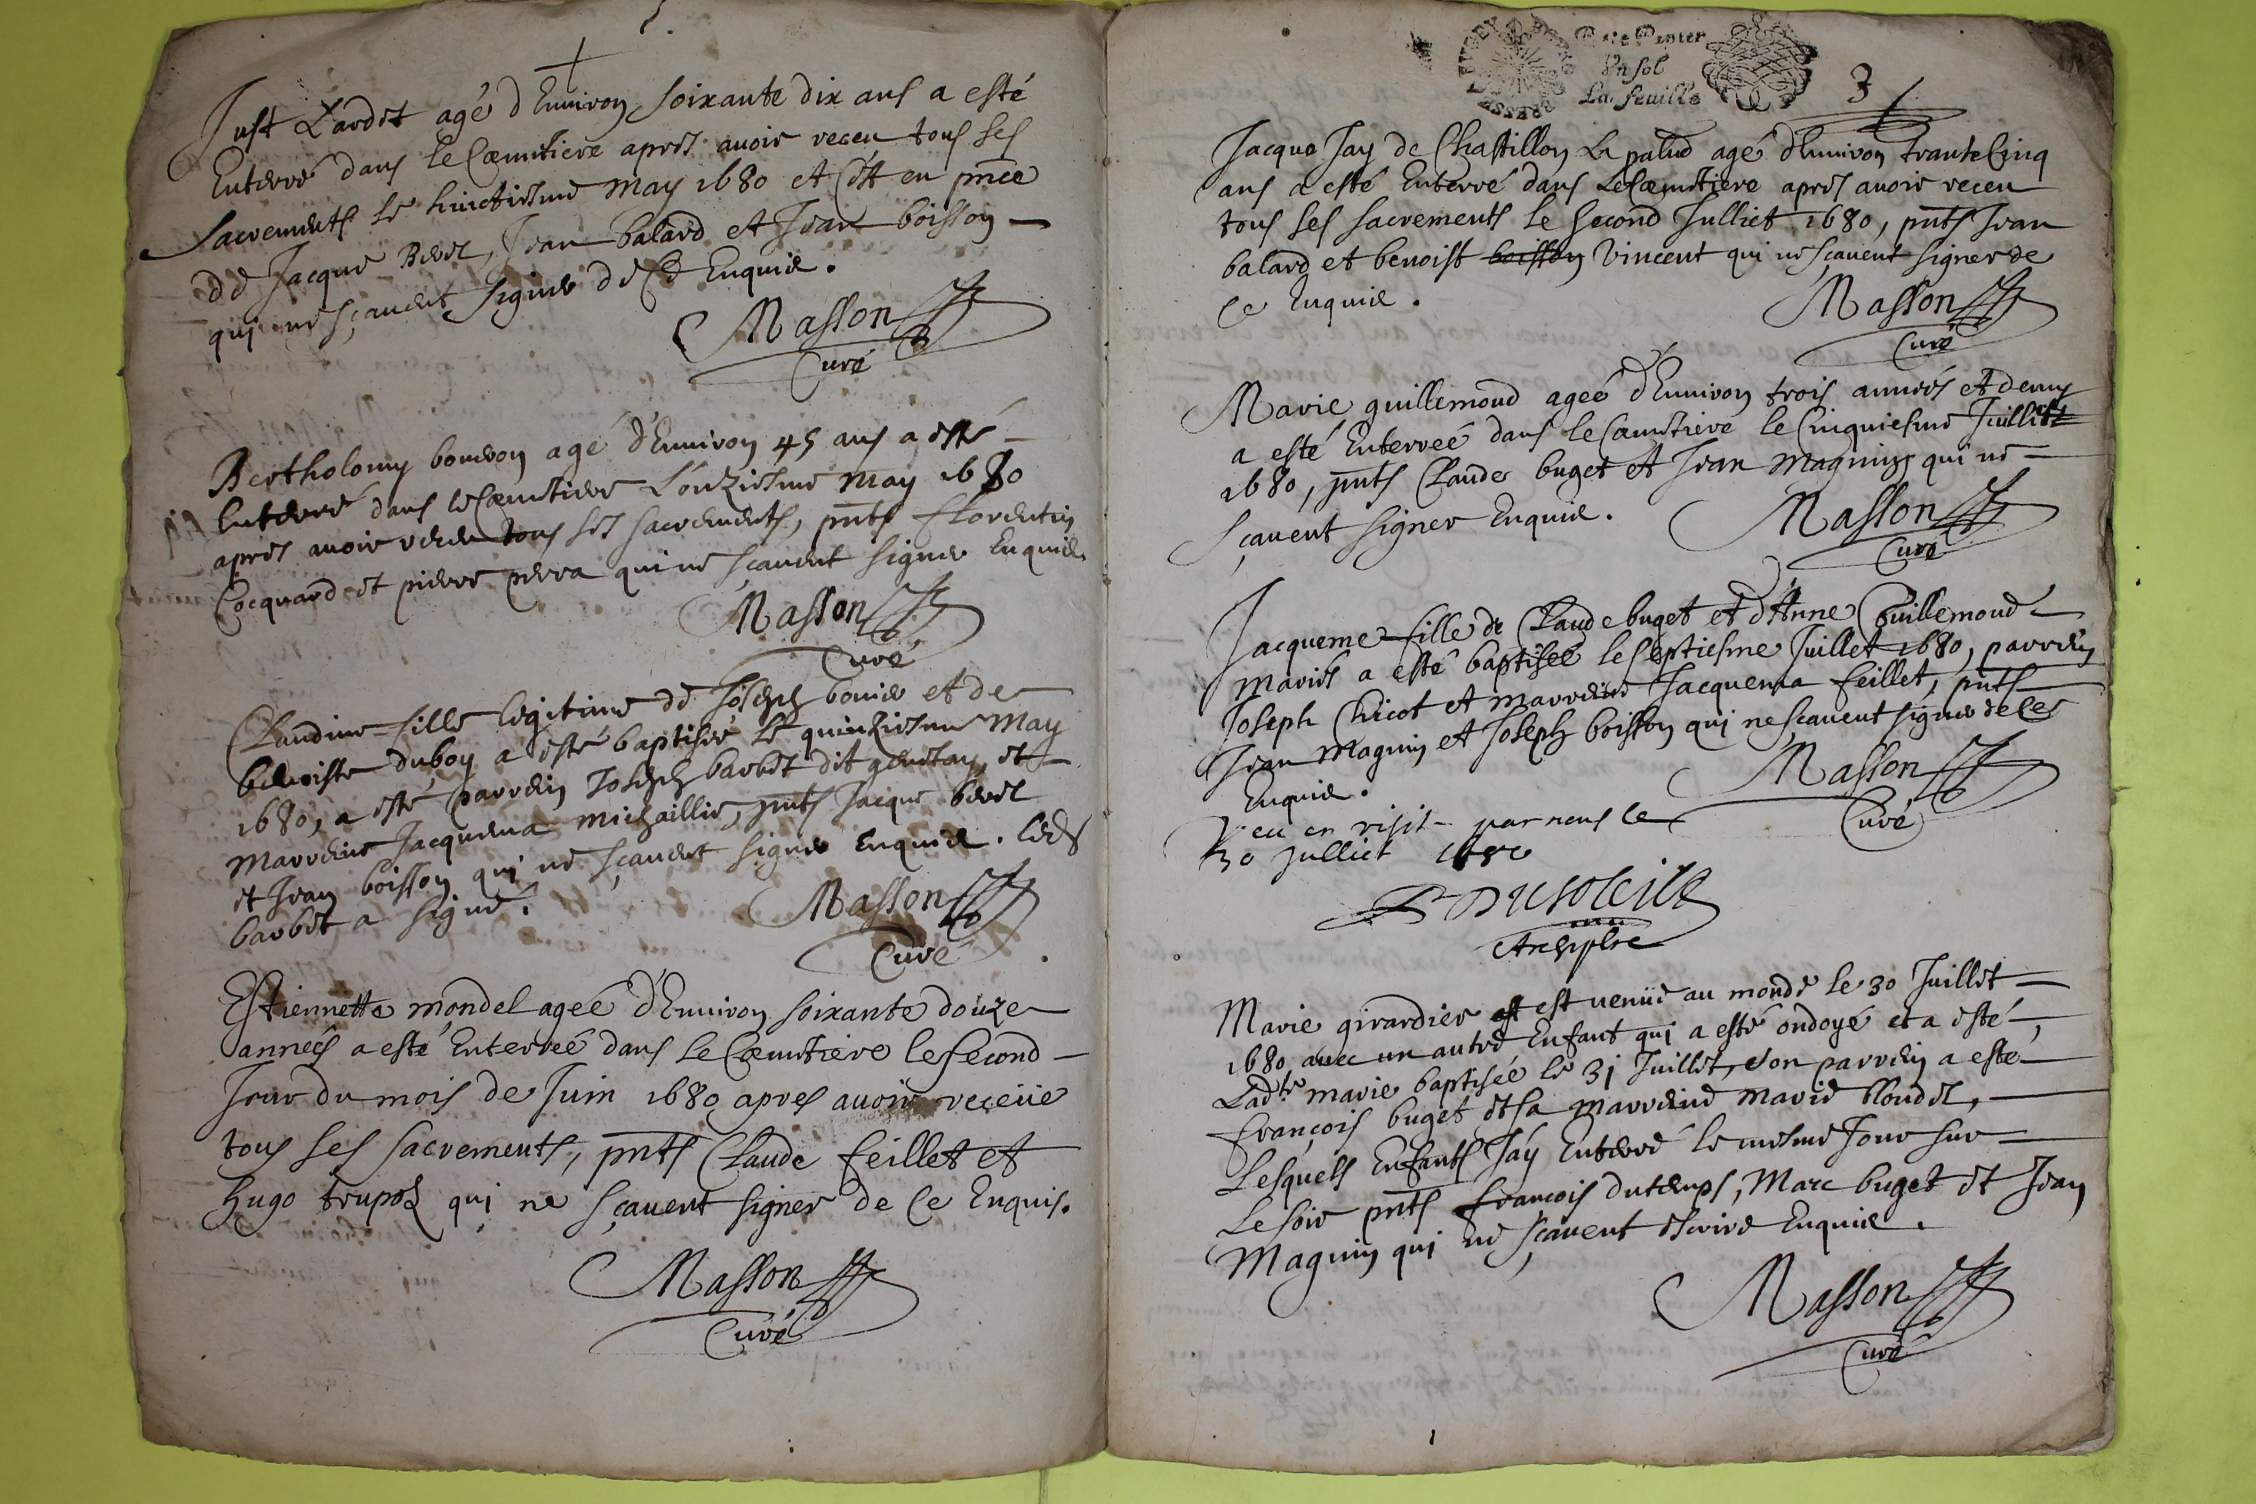 Just Lardet agé d'Environ soixante dix ans a esté
Enterré dans le Cæmitiere apres avoir receu tous ses
sacrements le huictiesme may 1680 et C'est en pñce
de Jacque Bevet, Jean balard et Jean boisson
qui ne sçauent signer de Ce Enquis.
Masson
Curé
Bertholomy bourdon agé d'Enuiron 45 ans a esté
Enterré dans le Cæmitiere L'onziesme may 1680
apres auoir receu tous ses sacrements, pñts florentin
Cocquard et pierre perra qui ne sçauent signer Enquis
Masson
Curé
Claudine fille legitime de Joseph bouier et de
benoiste duboy a esté baptisée le quinziesme May
1680, a esté parrein Joseph barbet dit et
marreine Jacquema michaillie, pñts Jacque bevet
et Jean boisson qui ne sçauent signer Enquis. Led
barbet a signé.
Masson
Curé
Estiennette mondel ageé d'Enuiron soixante douze
anneés a esté Enterreé dans le Cæmitiere le second
Jour du mois de Juin 1680 apres auoir receüe
tous ses sacrements, pñts Claude feillet et
hugo qui ne sçauent signer de Ce Enquis.
Masson
Curé
Un sol
La feuille
3
Jacque Jay de Chastillon la palud agé d'Enuiron trante Cinq
ans a esté Enterré dans le Cæmitiere apres auoir receu
tous ses sacrements le second Julliet 1680, pñts Jean
balard et benoist boisson Vincent qui ne sçauent signer de
Ce Enquis.
Masson
Curé
Marie guillemoud ageé d'Enuiron trois anneés et demy
a esté Enterreé dans le Cæmitiere le Cinquiesme Juillet
1680, pñts Claude buget et Jean magnin qui ne
sçauent signer Enquis.
Masson
Curé
Jacqueme fille de Claude buget et d'Anne Guillemoud
mariés a esté baptisée le septiesme Juillet 1680, parrein
Joseph Chicot et marreine Jacquema feillet, pñts
Jean magnin et Joseph boisson qui ne sçauent signer de Ce
Enquis.
Masson
Curé
Veu en visite par nous le
30 julliet 1680
DUSOLEIL
Archiptre
Marie girardier est est venüe au monde le 30 Juillet
1680 auec un autre Enfant qui a esté ondoyé et a esté
Ladte marie baptisée le 31 Juillet, son parrein a esté
françois buget et sa marreine marie blondel,
Lesquels Enfants J'ay Enterré le mesme Jour sur
Le soir pñts françois dutemps, Marc buget et Jean
Magnin qui ne sçauent escrire Enquis.
Masson
Curé